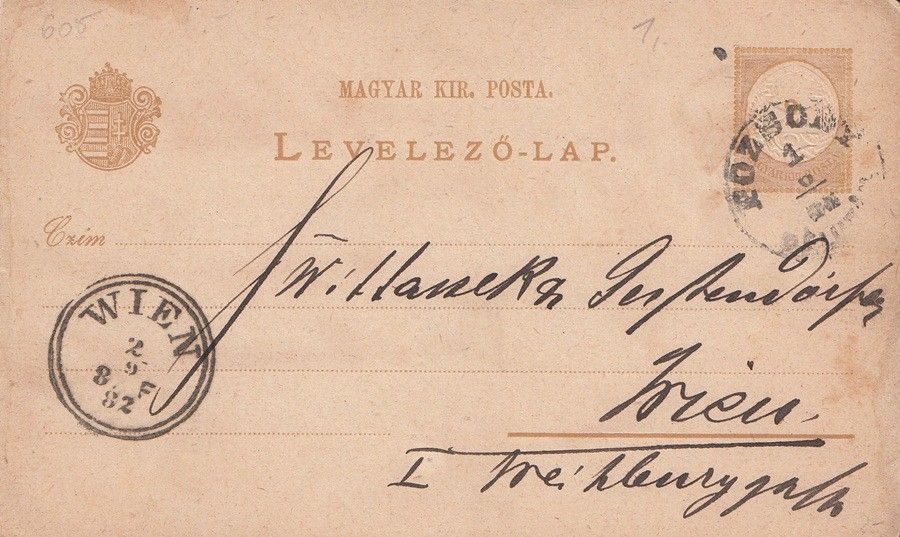 605
1,
MAGYAR KIR. POSTA.
LEVELEZŐ-LAP.
POZSONY
1
Czím
WIEN
2
9
8. F
82
Wittasseka Gerstendörfer
Wien
I Weihburggasse